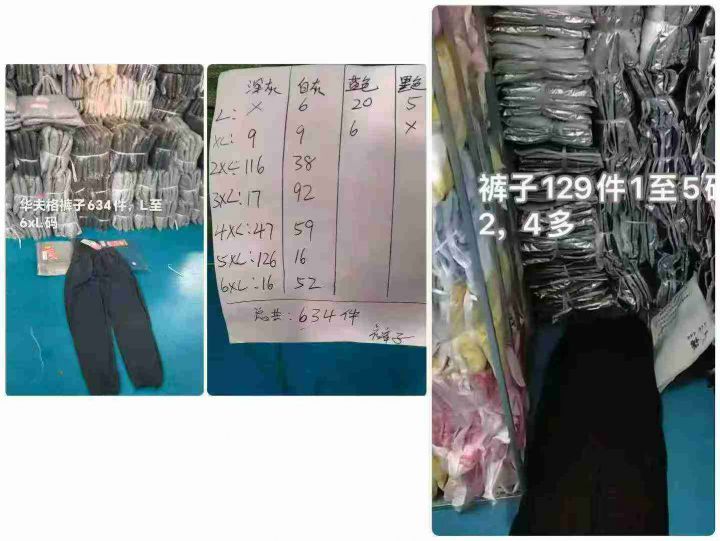 华夫格裤子634件，L至
6xL码
深灰 白灰 蓝色 黑色
L: × 6 20 5
XL: 9 9 6 ×
2XL: 116 38
3XL: 17 92
4XL: 47 59
5XL: 126 16
6XL: 16 52
总共: 634件
裤子
裤子129件1至5码
2，4多